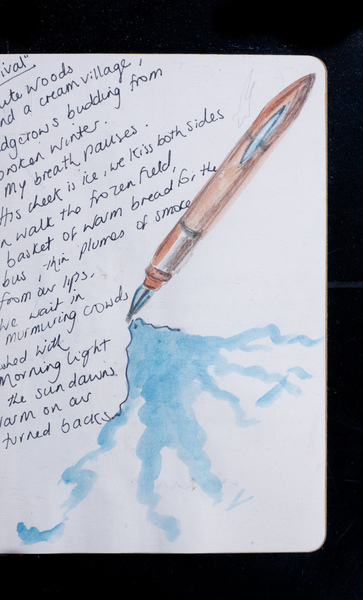 ival"
ute woods
nd a cream village,
dgerows budding from
broken winter.
My breath pauses.
His cheek is ice, we kiss both sides
n walk the frozen field,
basket of warm bread for the
bus, thin plumes of smoke
from our lips.
We wait in
murmuring crowds
shed with
Morning light
the sun dawns
warm on our
turned backs